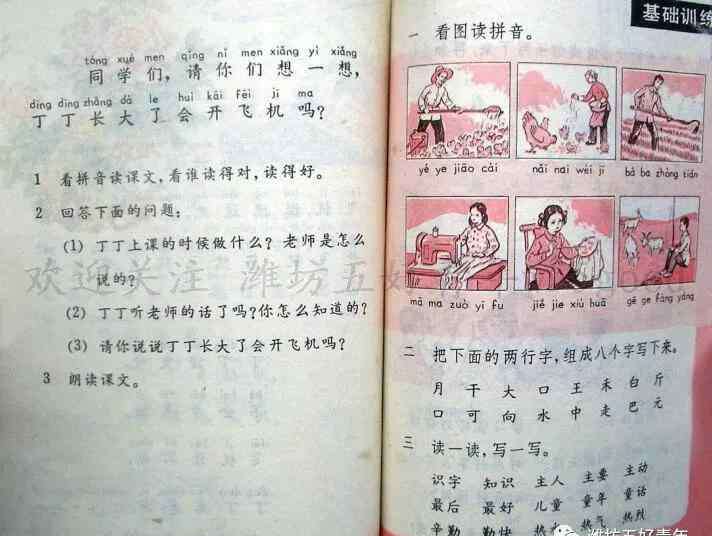 tóng xué men qǐng nǐ men xiǎng yì xiǎng
同学们，请你们想一想，
dīng dīng zhǎng dà le huì kāi fēi jī ma
丁丁长大了会开飞机吗？
1 看拼音读课文，看谁读得对，读得好。
2 回答下面的问题：
(1) 丁丁上课的时候做什么？老师是怎么
说的？
(2) 丁丁听老师的话了吗？你怎么知道的？
(3) 请你说说丁丁长大了会开飞机吗？
3 朗读课文。
欢迎关注 潍坊五好
基础训练
一 看图读拼音。
yé ye jiāo cài nǎi nai wèi jī bà ba zhòng tián
mā ma zuò yī fu jiě jie xiù huā gē ge fàng yáng
二 把下面的两行字，组成八个字写下来。
月 干 大 口 王 禾 白 斤
口 可 向 水 中 走 巴 元
三 读一读，写一写。
识字 知识 主人 主要 主动
最后 最好 儿童 童年 童话
辛勤 勤快 热水 热气 热烈
潍坊五好青年